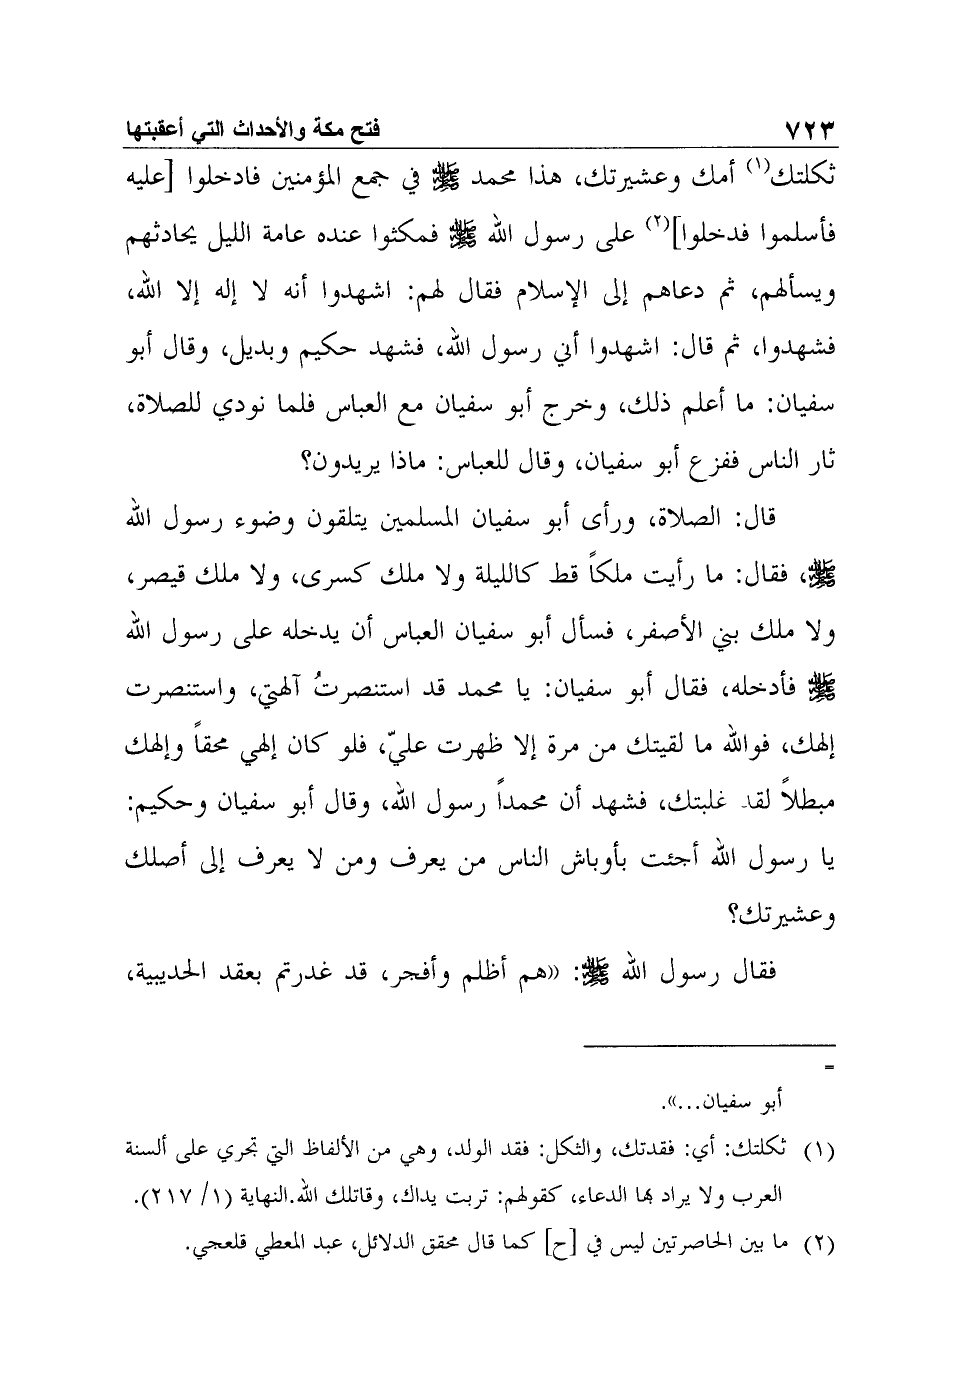 ٧٢٣ فتح مكة والأحداث التي أعقبتها
ثكلتك(١) أمك وعشيرتك، هذا محمد ﷺ في جمع المؤمنين فادخلوا [عليه
فأسلموا فدخلوا](٢) على رسول الله ﷺ فمكثوا عنده عامة الليل يحادثهم
ويسألهم، ثم دعاهم إلى الإسلام فقال لهم: اشهدوا أنه لا إله إلا الله،
فشهدوا، ثم قال: اشهدوا أني رسول الله، فشهد حكيم وبديل، وقال أبو
سفيان: ما أعلم ذلك، وخرج أبو سفيان مع العباس فلما نودي للصلاة،
ثار الناس ففزع أبو سفيان، وقال للعباس: ماذا يريدون؟
قال: الصلاة، ورأى أبو سفيان المسلمين يتلقون وضوء رسول الله
ﷺ، فقال: ما رأيت ملكاً قط كالليلة ولا ملك كسرى، ولا ملك قيصر،
ولا ملك بني الأصفر، فسأل أبو سفيان العباس أن يدخله على رسول الله
ﷺ فأدخله، فقال أبو سفيان: يا محمد قد استنصرتُ آلهتي، واستنصرت
إلهك، فوالله ما لقيتك من مرة إلا ظهرت عليّ، فلو كان إلهي محقاً وإلهك
مبطلاً لقد غلبتك، فشهد أن محمداً رسول الله، وقال أبو سفيان وحكيم:
يا رسول الله أجئت بأوباش الناس من يعرف ومن لا يعرف إلى أصلك
وعشيرتك؟
فقال رسول الله ﷺ: «هم أظلم وأفجر، قد غدرتم بعقد الحديبية،
=
أبو سفيان...».
(١) ثكلتك: أي: فقدتك، والثكل: فقد الولد، وهي من الألفاظ التي تجري على ألسنة
العرب ولا يراد بها الدعاء، كقولهم: تربت يداك، وقاتلك الله.النهاية (١/ ٢١٧).
(٢) ما بين الحاصرتين ليس في [ح] كما قال محقق الدلائل، عبد المعطي قلعجي.